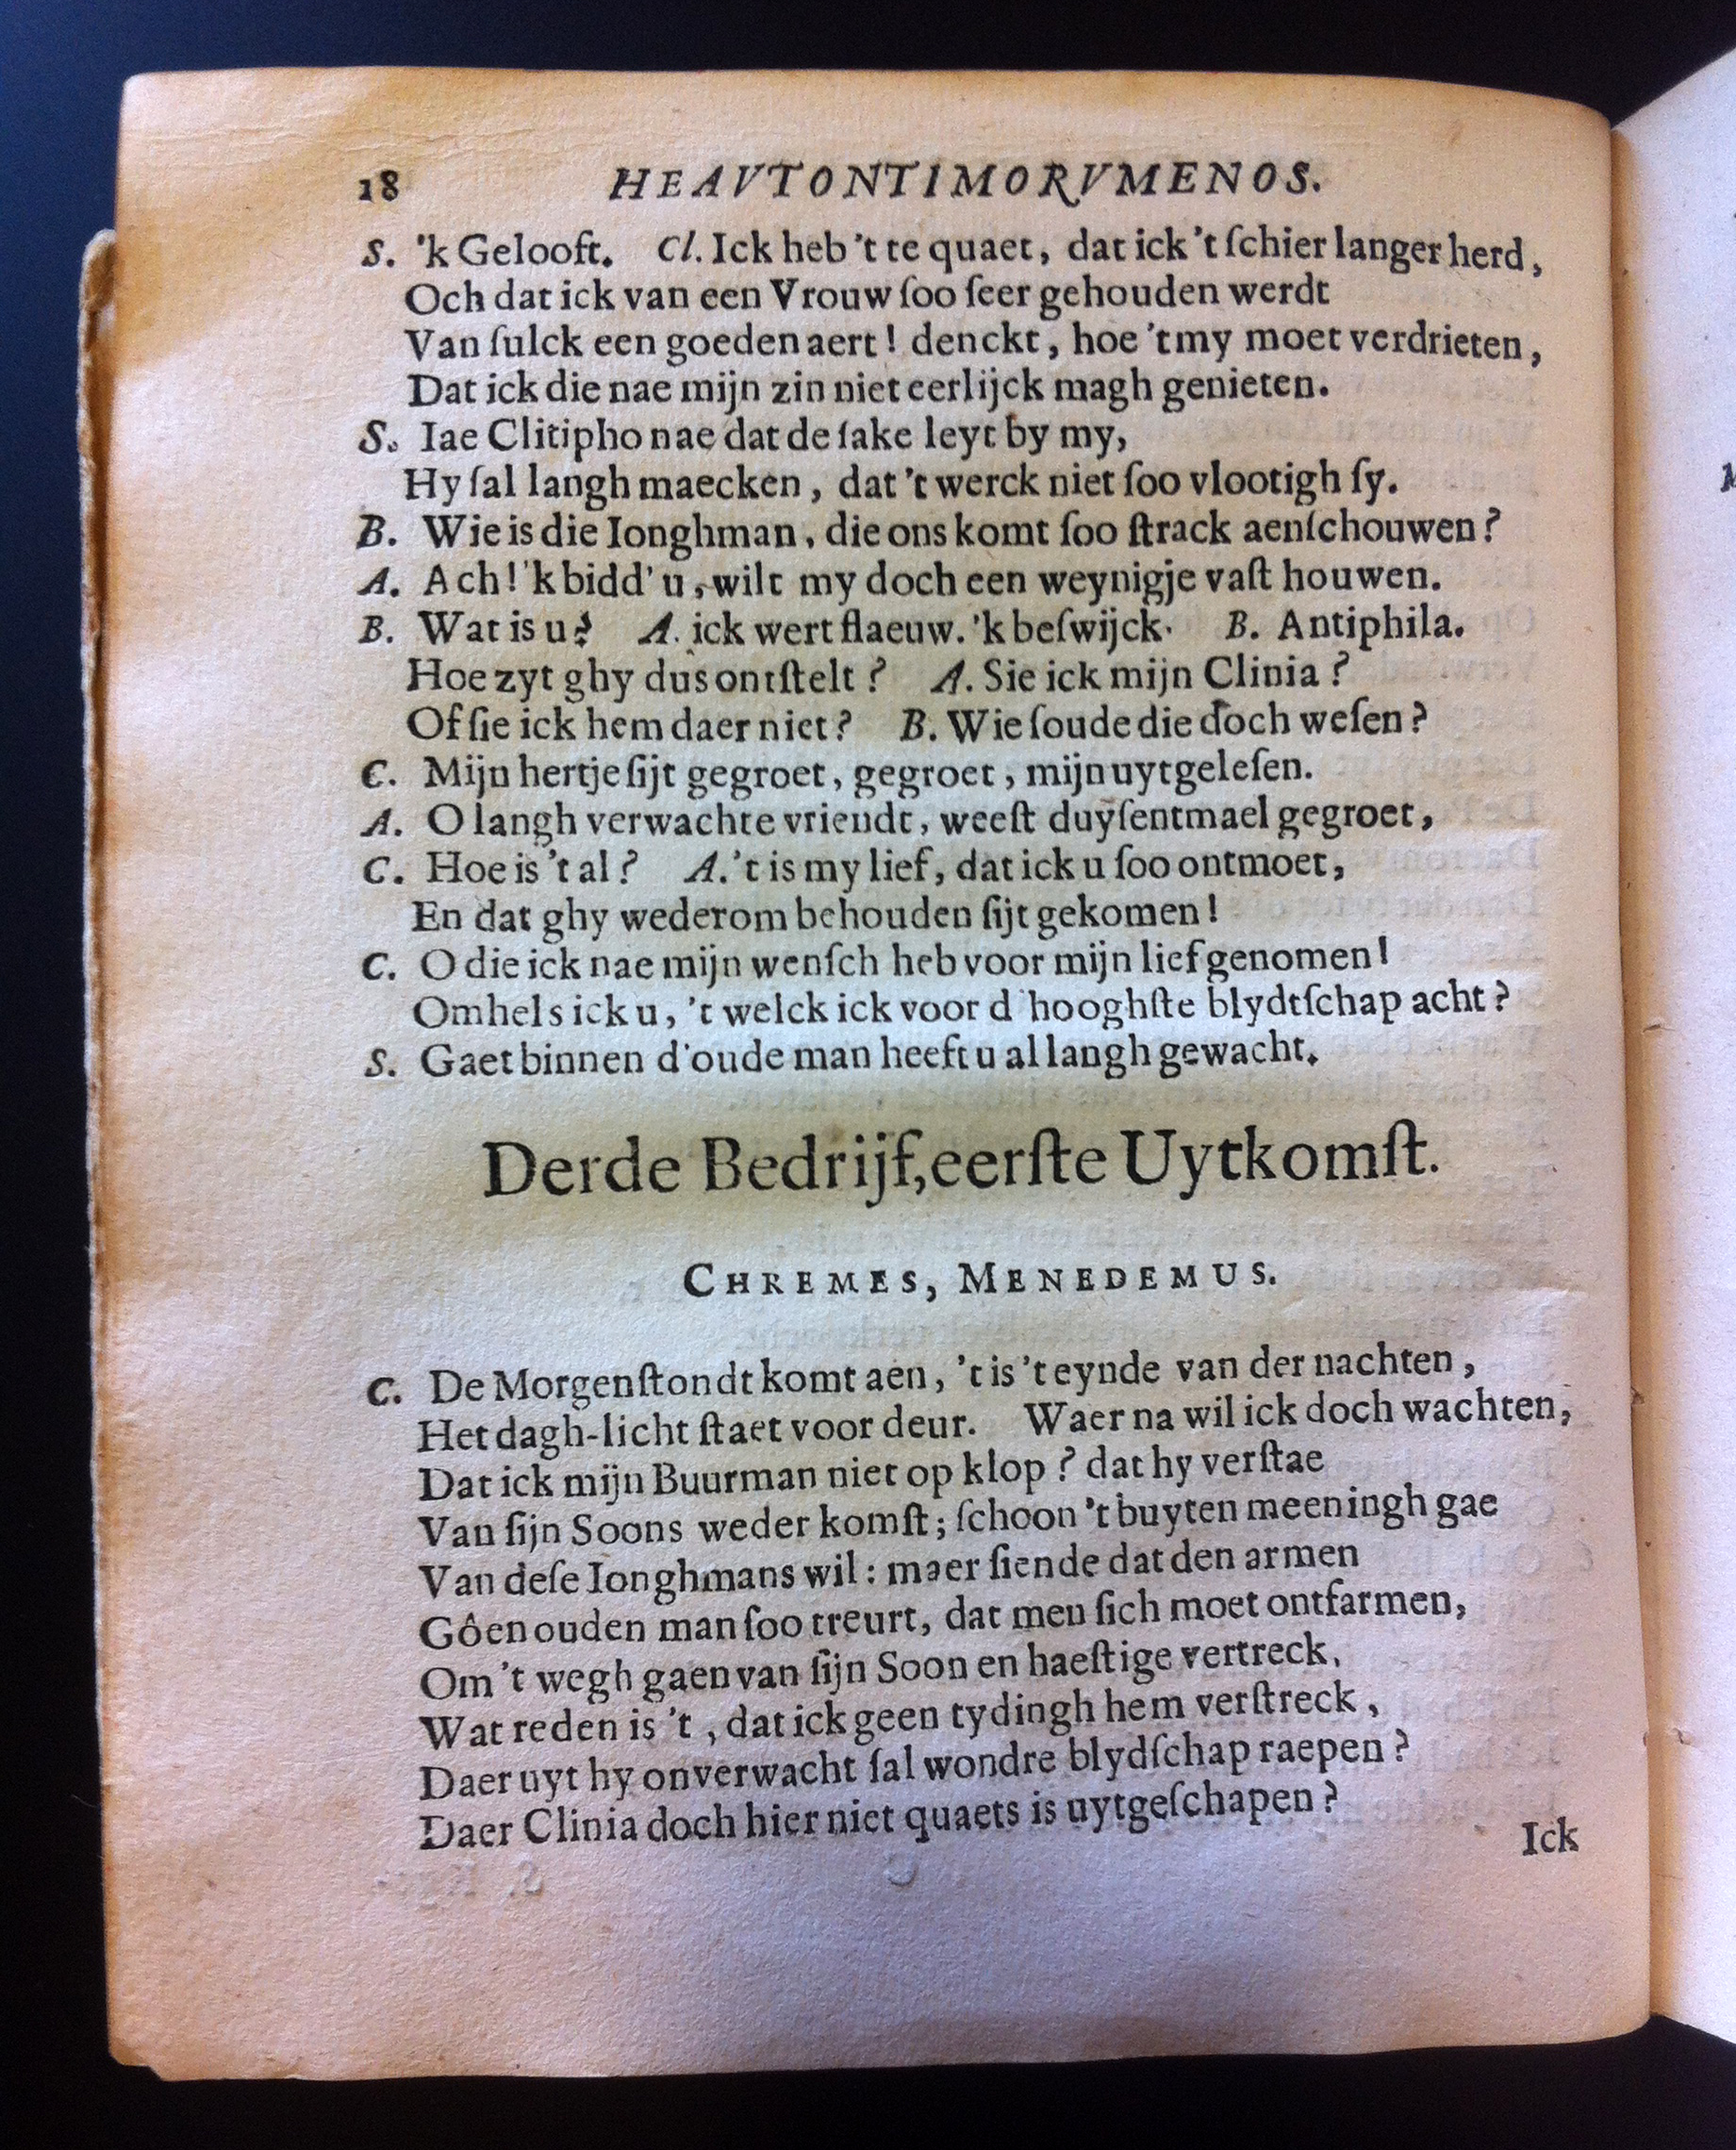 18 HEAVTONTIMORVMENOS.
S. 'k Gelooft. Cl. Ick heb 't te quaet, dat ick 't ſchier langer herd,
Och dat ick van een Vrouw ſoo ſeer gehouden werdt
Van ſulck een goeden aert! denckt, hoe 't my moet verdrieten,
Dat ick die nae mijn zin niet eerlijck magh genieten.
S. Iae Clitipho nae dat de ſake leyt by my,
Hy ſal langh maecken, dat 't werck niet ſoo vlootigh ſy.
B. Wie is die Ionghman, die ons komt ſoo ſtrack aenſchouwen?
A. Ach! 'k bidd' u, wilt my doch een weynigje vaſt houwen.
B. Wat is u? A. ick wert flaeuw. 'k beſwijck. B. Antiphila.
Hoe zyt ghy dus ontſtelt? A. Sie ick mijn Clinia?
Of ſie ick hem daer niet? B. Wie ſoude die doch weſen?
C. Mijn hertje ſijt gegroet, gegroet, mijn uytgeleſen.
A. O langh verwachte vriendt, weeſt duyſentmael gegroet,
C. Hoe is 't al? A. 't is my lief, dat ick u ſoo ontmoet,
En dat ghy wederom behouden ſijt gekomen!
C. O die ick nae mijn wenſch heb voor mijn lief genomen!
Omhels ick u, 't welck ick voor d'hooghſte blydtſchap acht?
S. Gaet binnen d'oude man heeft u al langh gewacht.
Derde Bedrijf, eerſte Uytkomſt.
CHREMES, MENEDEMUS.
C. De Morgenſtondt komt aen, 't is 't eynde van der nachten,
Het dagh-licht ſtaet voor deur. Waer na wil ick doch wachten,
Dat ick mijn Buurman niet op klop? dat hy verſtae
Van ſijn Soons weder komſt; ſchoon 't buyten meeningh gae
Van deſe Ionghmans wil: maer ſiende dat den armen
Gôen ouden man ſoo treurt, dat men ſich moet ontfarmen,
Om 't wegh gaen van ſijn Soon en haeſtige vertreck,
Wat reden is 't, dat ick geen tydingh hem verſtreck,
Daer uyt hy onverwacht ſal wondre blydſchap raepen?
Daer Clinia doch hier niet quaets is uytgeſchapen?
Ick